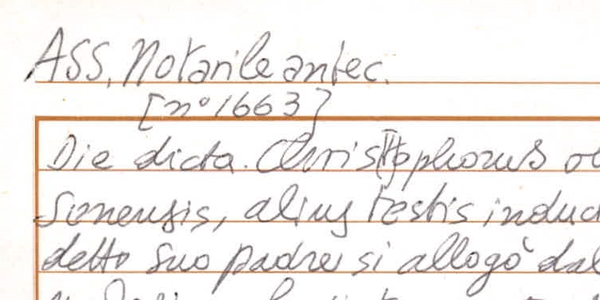 ASS, Notarile antec.
[n° 1663]
Die dicta. Christophorus
Senensis, alius testis induc
detto suo padre si allogò dal